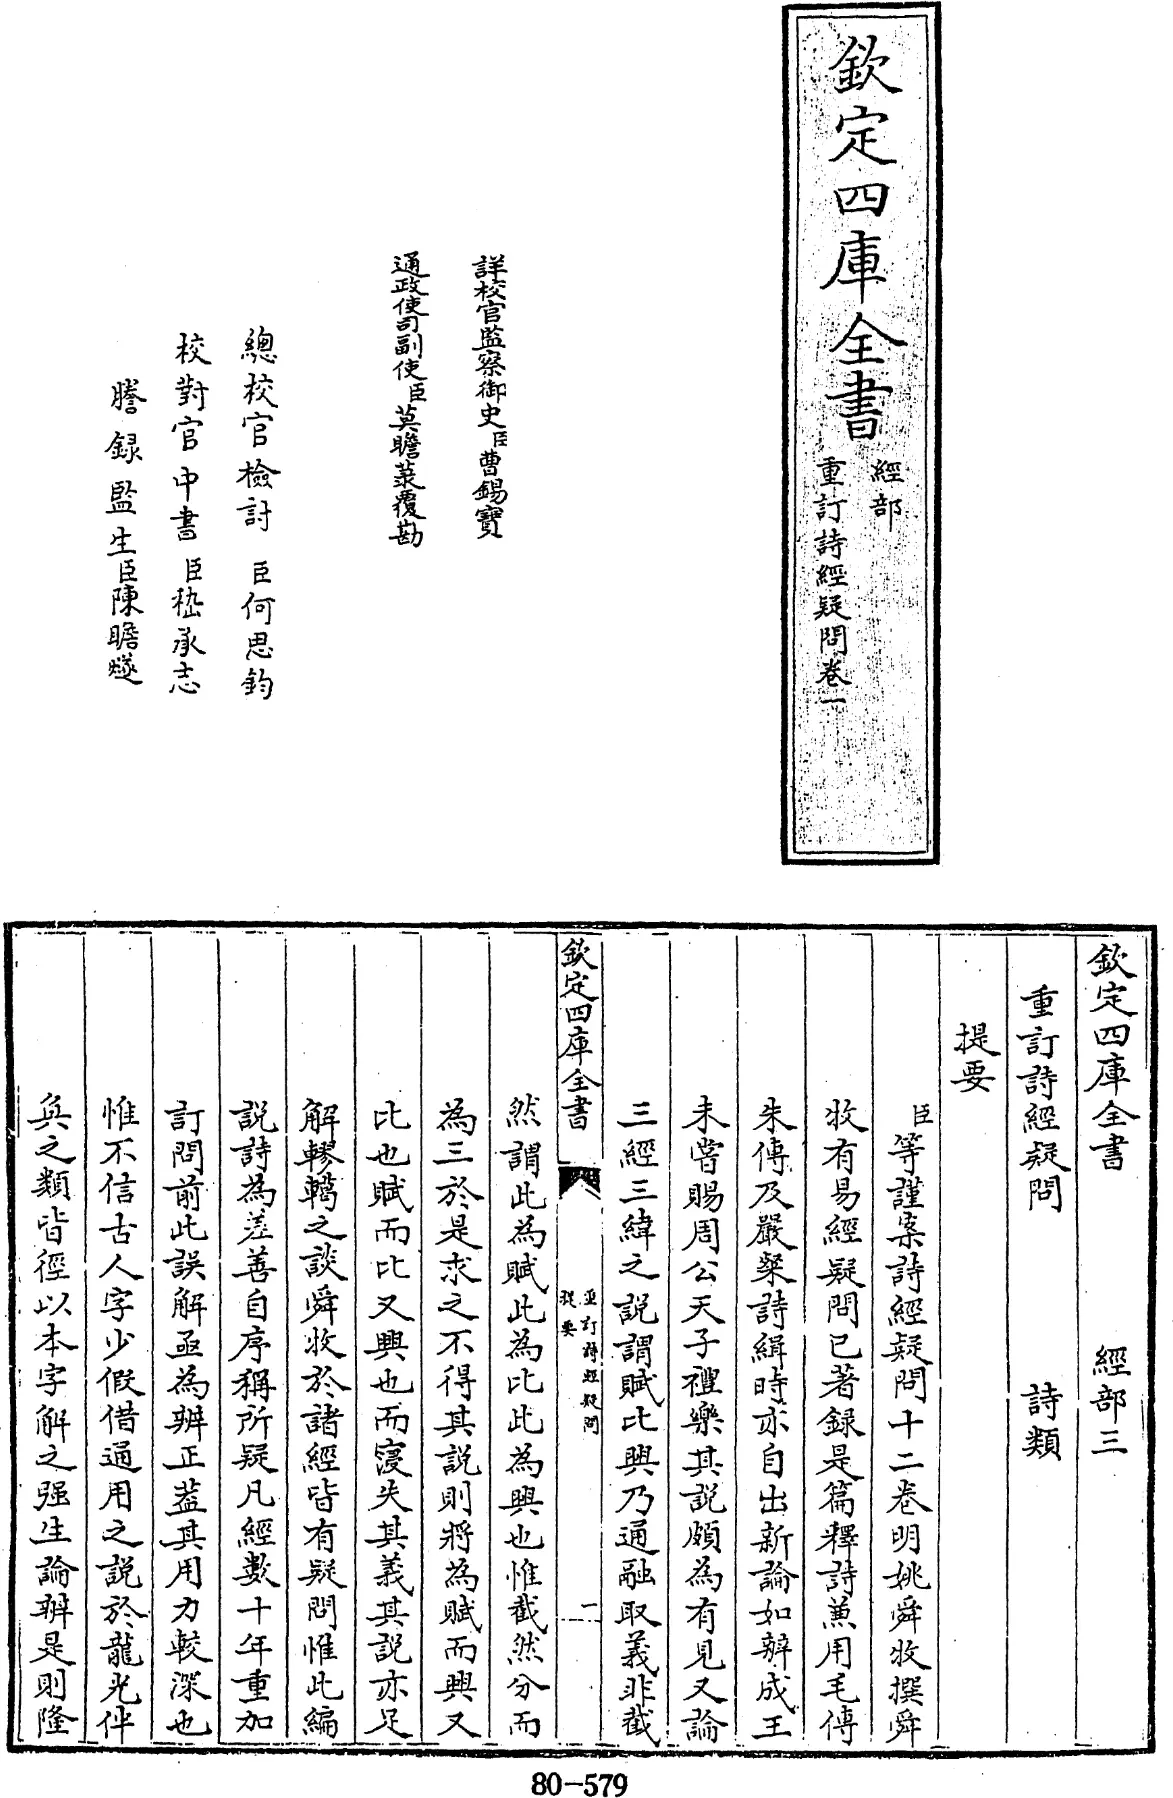 欽定四庫全書
經部
重訂詩經疑問卷一
詳校官監察御史臣曹錫寶
通政使司副使臣莫瞻菉覆勘
總校官檢討臣何思鈞
校對官中書臣嵇承志
謄錄監生臣陳瞻燧
欽定四庫全書 經部三
重訂詩經疑問 詩類
提要
臣等謹案詩經疑問十二卷明姚舜牧撰舜
牧有易經疑問已著録是篇釋詩兼用毛傳
朱傳及嚴粲詩緝時亦自出新論如辨成王
未嘗賜周公天子禮樂其説頗為有見又論
三經三緯之説謂賦比興乃通融取義非截
欽定四庫全書
重訂詩經疑問
提要
一
然謂此為賦此為比此為興也惟截然分而
為三於是求之不得其説則將為賦而興又
比也賦而比又興也而寖失其義其説亦足
解轇轕之談舜牧於諸經皆有疑問惟此編
説詩為差善自序稱所疑凡經數十年重加
訂問前此誤解亟為辨正蓋其用力較深也
惟不信古人字少假借通用之説於龍光伴
奐之類皆徑以本字解之强生論辨是則隆
80-579